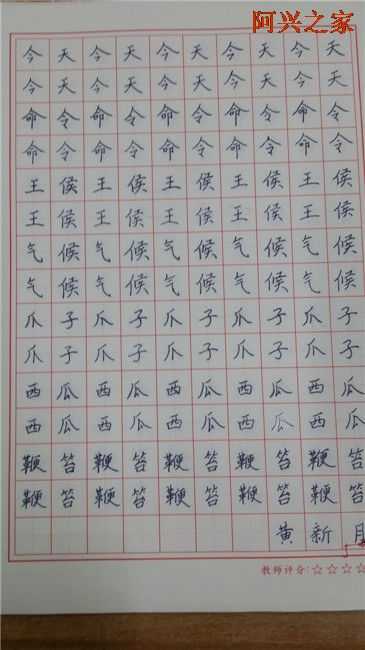 阿兴之家
今天今天今天今天今天
今天今天今天今天今天
命令命令命令命令命令
命令命令命令命令命令
王侯王侯王侯王侯王侯
王侯王侯王侯王侯王侯
气候气候气候气候气候
气候气候气候气候气候
爪子爪子爪子爪子爪子
爪子爪子爪子爪子爪子
西瓜西瓜西瓜西瓜西瓜
西瓜西瓜西瓜西瓜西瓜
鞭笞鞭笞鞭笞鞭笞鞭笞
鞭笞鞭笞鞭笞鞭笞鞭笞
黄新月
教师评分:☆☆☆☆